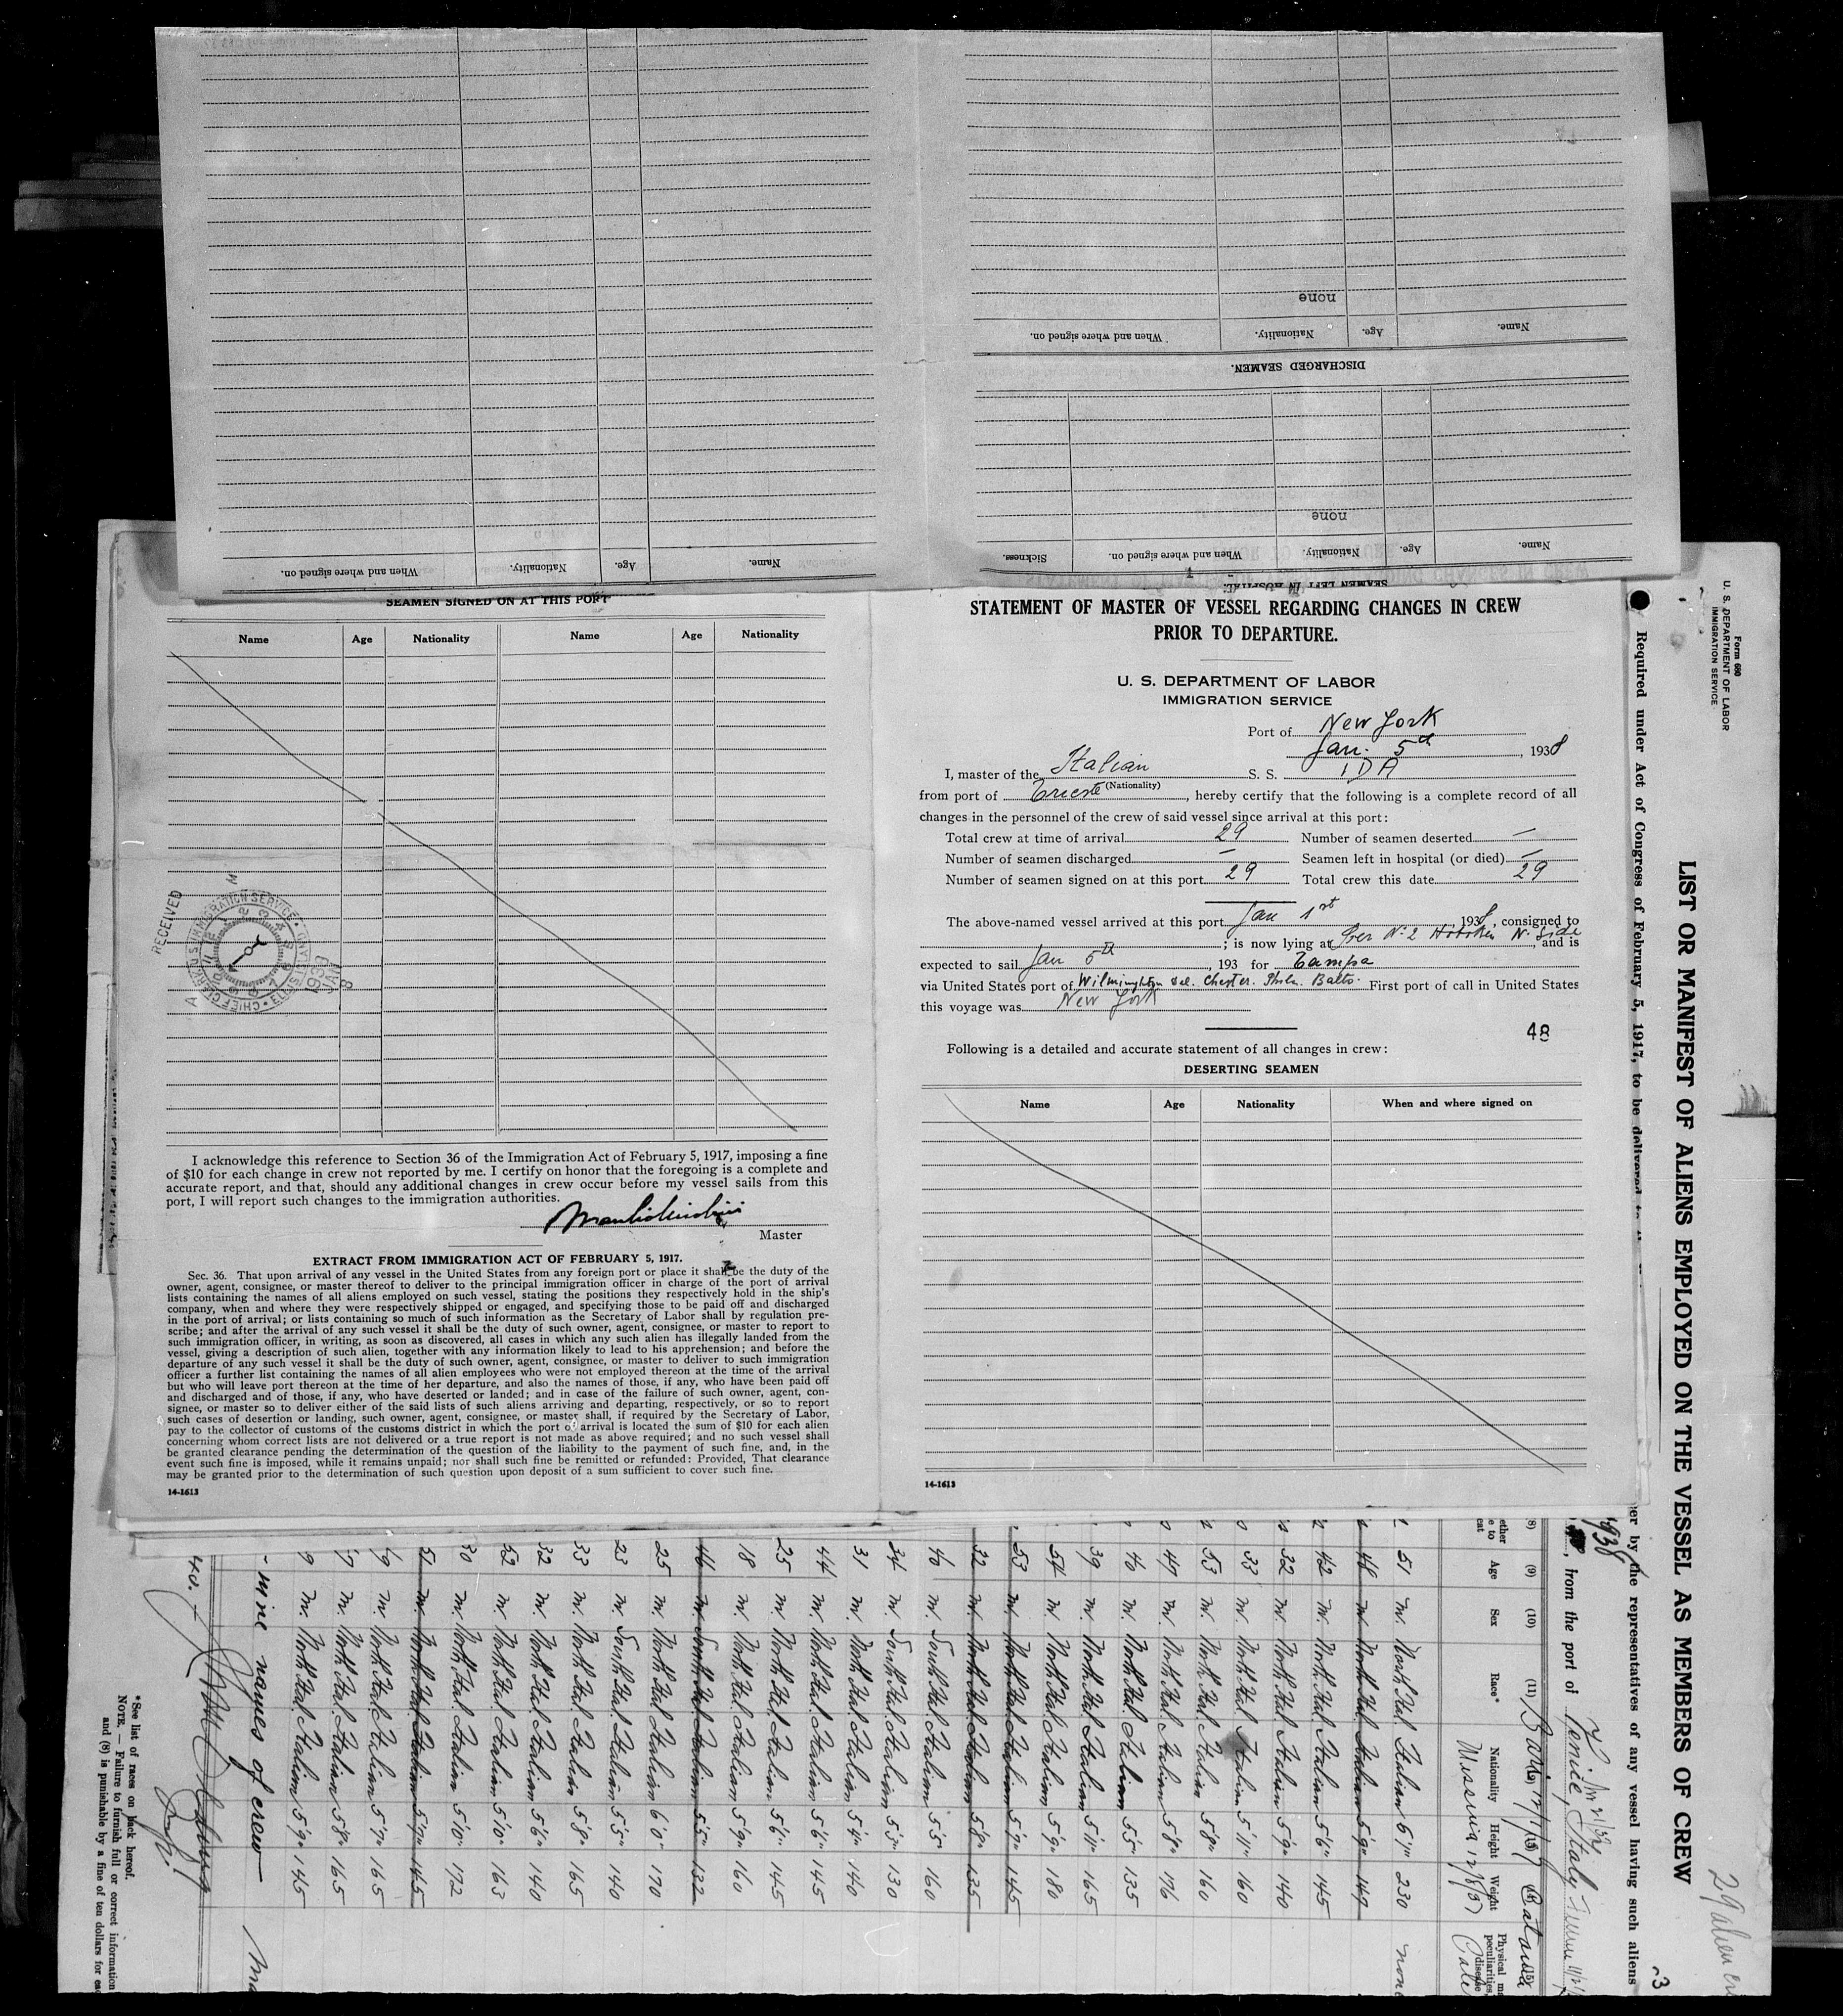 Name. Age. Nationality. When and where signed on.
DISCHARGED SEAMEN.
Name. Age. Nationality. When and where signed on.
none
SEAMEN LEFT IN HOSPITAL.
Name. Age. Nationality. When and where signed on. Sickness.
none
SEAMEN SIGNED ON AT THIS PORT
Name Age Nationality Name Age Nationality
RECEIVED
CHIEF CLERK U.S. IMMIGRATION SERVICE
1938
JAN
8
I acknowledge this reference to Section 36 of the Immigration Act of February 5, 1917, imposing a fine
of $10 for each change in crew not reported by me. I certify on honor that the foregoing is a complete and
accurate report, and that, should any additional changes in crew occur before my vessel sails from this
port, I will report such changes to the immigration authorities.
Master
EXTRACT FROM IMMIGRATION ACT OF FEBRUARY 5, 1917.
Sec. 36. That upon arrival of any vessel in the United States from any foreign port or place it shall be the duty of the
owner, agent, consignee, or master thereof to deliver to the principal immigration officer in charge of the port of arrival
lists containing the names of all aliens employed on such vessel, stating the positions they respectively hold in the ship's
company, when and where they were respectively shipped or engaged, and specifying those to be paid off and discharged
in the port of arrival; or lists containing so much of such information as the Secretary of Labor shall by regulation pre-
scribe; and after the arrival of any such vessel it shall be the duty of such owner, agent, consignee, or master to report to
such immigration officer, in writing, as soon as discovered, all cases in which any such alien has illegally landed from the
vessel, giving a description of such alien, together with any information likely to lead to his apprehension; and before the
departure of any such vessel it shall be the duty of such owner, agent, consignee, or master to deliver to such immigration
officer a further list containing the names of all alien employees who were not employed thereon at the time of the arrival
but who will leave port thereon at the time of her departure, and also the names of those, if any, who have been paid off
and discharged and of those, if any, who have deserted or landed; and in case of the failure of such owner, agent, con-
signee, or master so to deliver either of the said lists of such aliens arriving and departing, respectively, or so to report
such cases of desertion or landing, such owner, agent, consignee, or master shall, if required by the Secretary of Labor,
pay to the collector of customs of the customs district in which the port of arrival is located the sum of $10 for each alien
concerning whom correct lists are not delivered or a true report is not made as above required; and no such vessel shall
be granted clearance pending the determination of the question of the liability to the payment of such fine, and, in the
event such fine is imposed, while it remains unpaid; nor shall such fine be remitted or refunded: Provided, That clearance
may be granted prior to the determination of such question upon deposit of a sum sufficient to cover such fine.
14-1613
STATEMENT OF MASTER OF VESSEL REGARDING CHANGES IN CREW
PRIOR TO DEPARTURE.
U. S. DEPARTMENT OF LABOR
IMMIGRATION SERVICE
Port of New York
Jan. 5th, 1938
I, master of the Italian S. S. IDA
(Nationality)
from port of Trieste, hereby certify that the following is a complete record of all
changes in the personnel of the crew of said vessel since arrival at this port:
Total crew at time of arrival 29 Number of seamen deserted —
Number of seamen discharged — Seamen left in hospital (or died) —
Number of seamen signed on at this port 29 Total crew this date 29
The above-named vessel arrived at this port Jan 1st 1938, consigned to
; is now lying at Pier N. 2 Hoboken N. Side, and is
expected to sail Jan 5th, 193 for Tampa
via United States port of Wilmington Del. Chester. Phila. Balto. First port of call in United States
this voyage was New York
48
Following is a detailed and accurate statement of all changes in crew:
DESERTING SEAMEN
Name Age Nationality When and where signed on
14-1613
Form 680
U. S. DEPARTMENT OF LABOR
IMMIGRATION SERVICE
LIST OR MANIFEST OF ALIENS EMPLOYED ON THE VESSEL AS MEMBERS OF CREW
Required under Act of Congress of February 5, 1917, to be delivered
by the representatives of any vessel having such aliens
1938, from the port of Venice, Italy
(8) (9) (10) (11)
Age Sex Race* Nationality Height Weight
51 m. North Ital. Italian 6'1" 230 none
48 m. North Ital. Italian 5'9" 149
42 m. North Ital. Italian 5'6" 145
32 m. North Ital. Italian 5'9" 140
33 m. North Ital. Italian 5'11" 160
53 m. North Ital. Italian 5'8" 160
47 m. North Ital. Italian 5'8" 176
40 m. North Ital. Italian 5'5" 135
39 m. North Ital. Italian 5'11" 165
54 m. North Ital. Italian 5'9" 180
53 m. North Ital. Italian 5'7" 145
32 m. North Ital. Italian 5'8" 135
40 m. South Ital. Italian 5'5" 160
34 m. South Ital. Italian 5'3" 130
31 m. North Ital. Italian 5'4" 140
44 m. North Ital. Italian 5'6" 145
25 m. North Ital. Italian 5'6" 145
18 m. North Ital. Italian 5'9" 160
46 m. South Ital. Italian 5'5" 132
25 m. North Ital. Italian 6'0" 170
23 m. South Ital. Italian 5'5" 140
33 m. North Ital. Italian 5'8" 165
32 m. North Ital. Italian 5'6" 140
52 m. North Ital. Italian 5'10" 163
30 m. North Ital. Italian 5'10" 172
51 m. North Ital. Italian 5'7" 145
19 m. North Ital. Italian 5'7" 165
m. North Ital. Italian 5'8" 165
m. North Ital. Italian 5'9" 145
- nine names of crew
*See list of races on back hereof.
NOTE. — Failure to furnish full or correct information
and (8) is punishable by a fine of ten dollars for